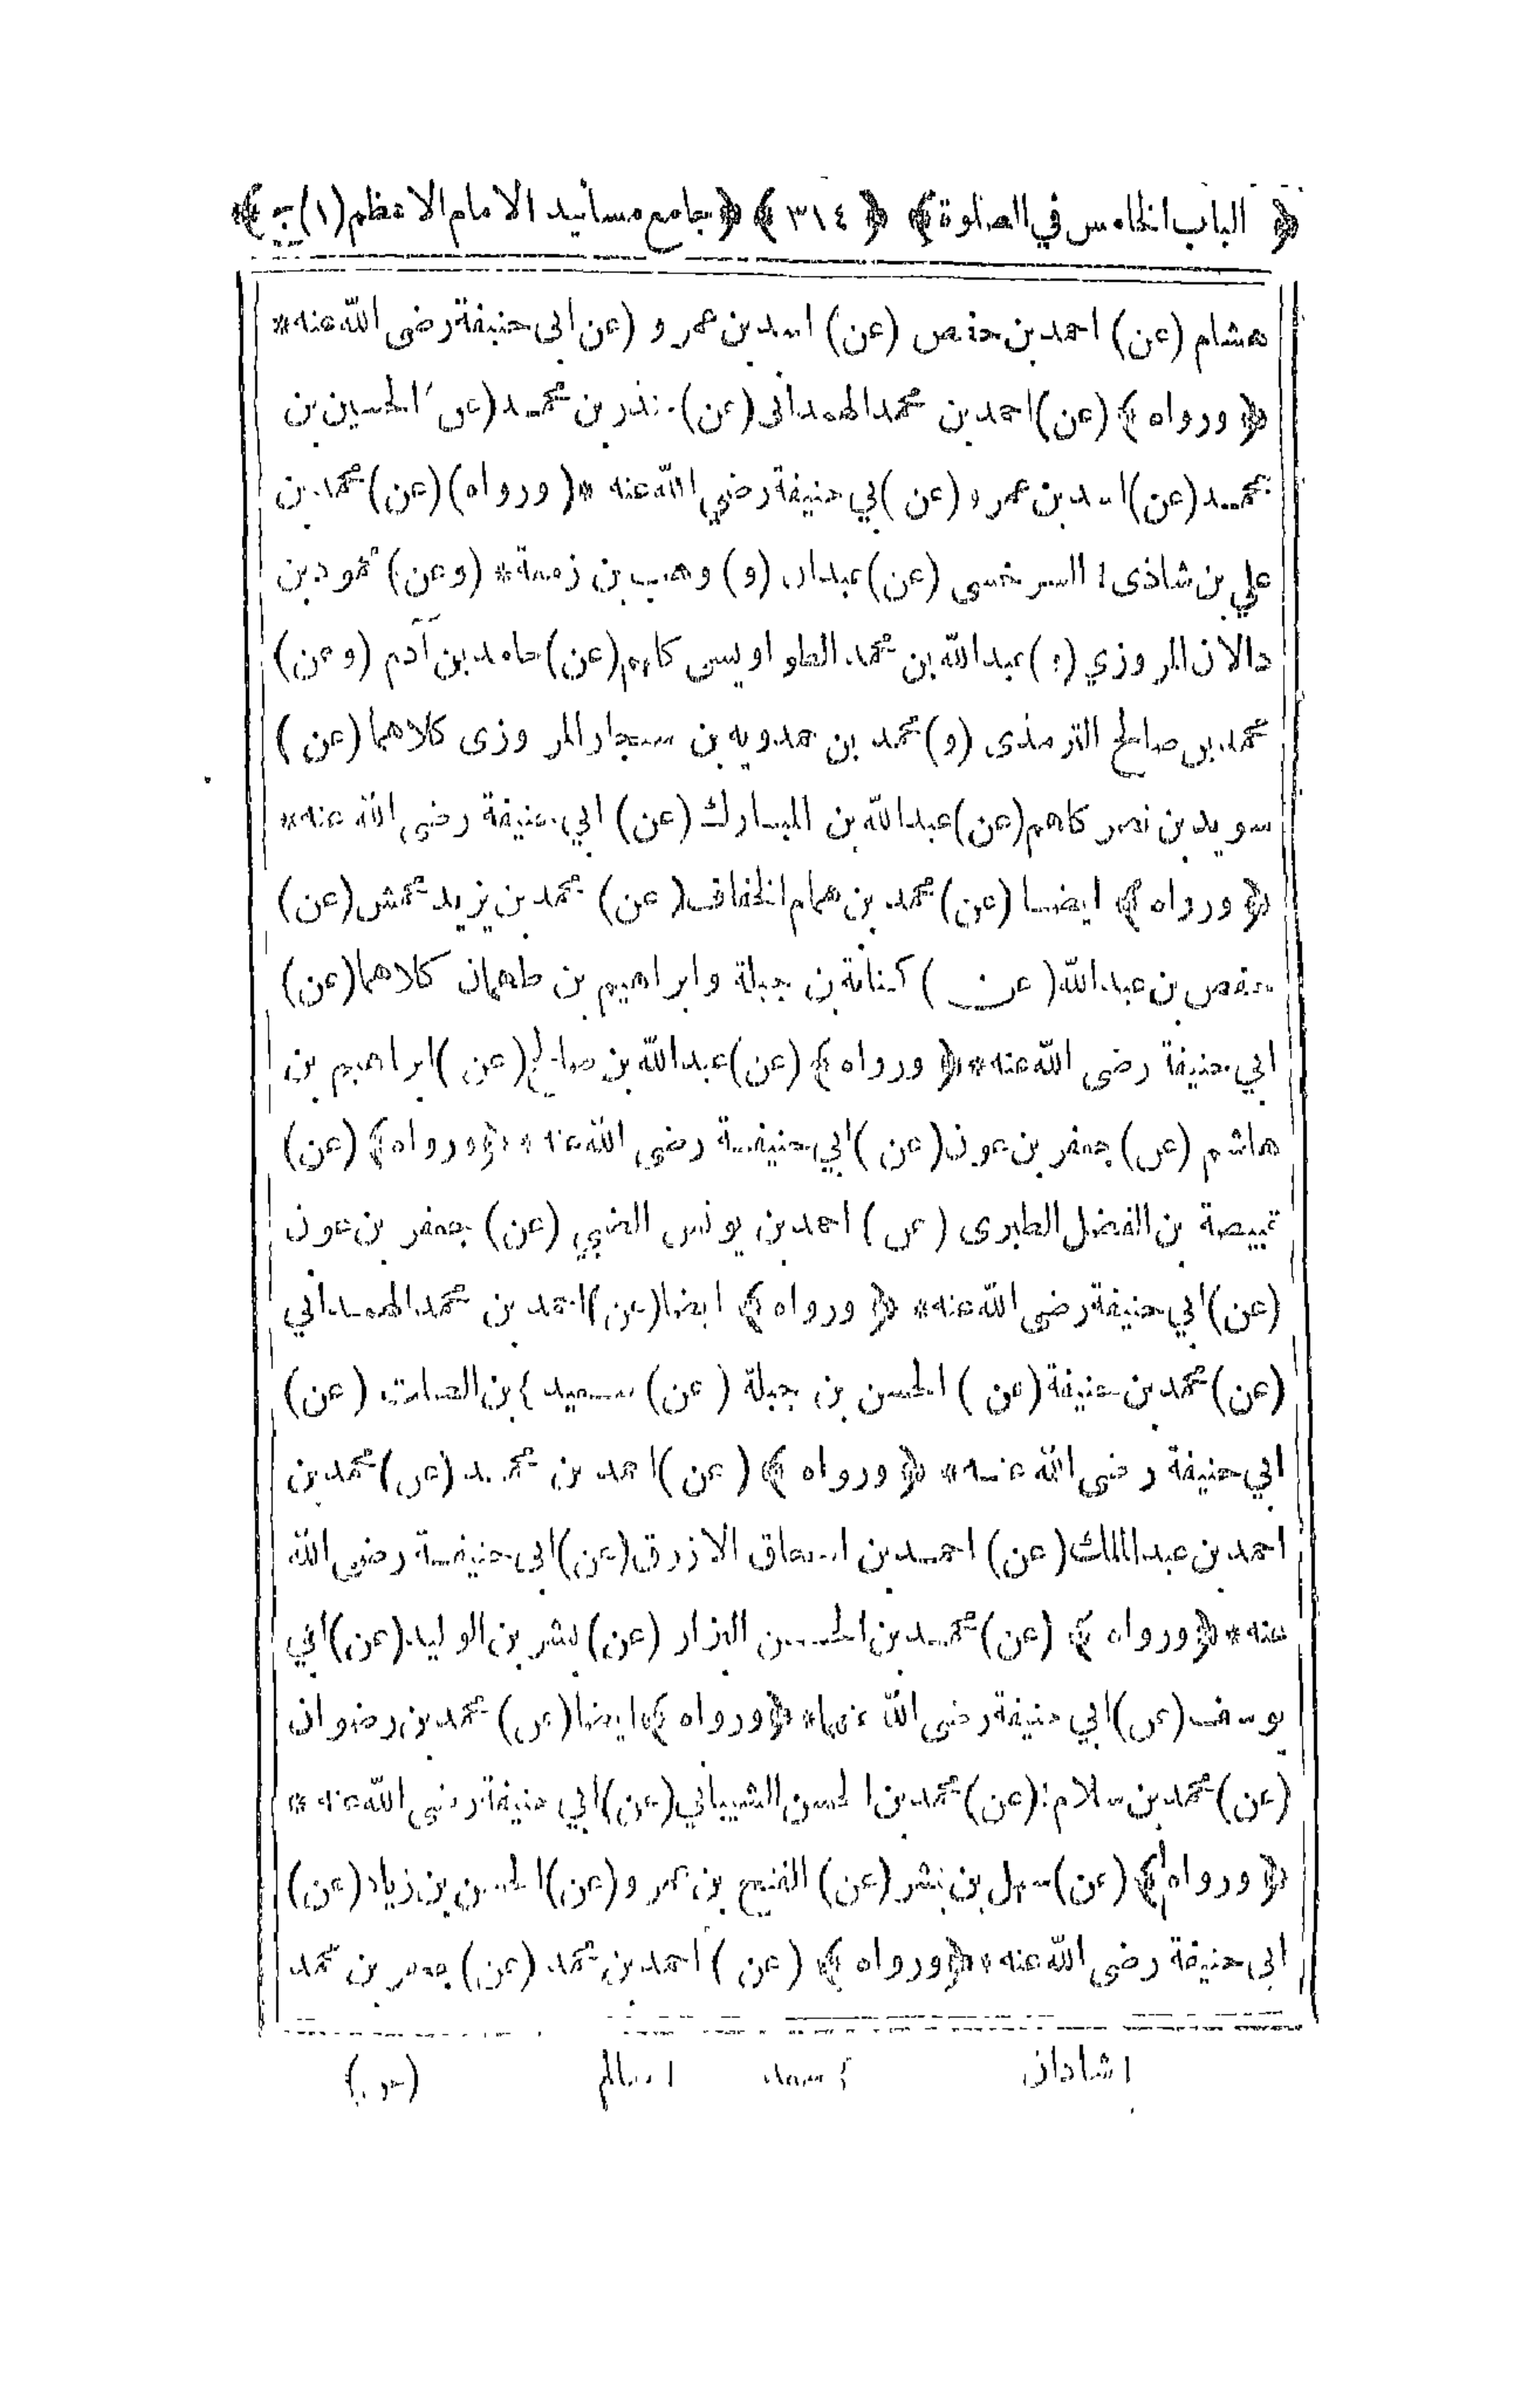 ﴿ الباب الخامس في الصلوة ﴾ ﴿ ٣١٤ ﴾ ﴿ جامع مسانيد الامام الاعظم (١) ج ﴾
هشام (عن) احمد بن حفص (عن) اسد بن عمرو (عن ابى حنيفة رضى الله عنه *
﴿ ورواه ﴾ (عن) احمد بن محمد الهمدانى (عن) منذر بن محمد (عن الحسين بن
محمد (عن) اسد بن عمرو (عن) بي حنيفة رضي الله عنه * (ورواه) (عن) محمد بن
علي بن شاذى السرخسى (عن) عبدان (و) وهب بن زمعة * (وعن) محمود بن
دالان المروزي (و) عبدالله بن محمد الطواويسى كلهم (عن) حامد بن آدم (وعن)
محمد بن صالح الترمذى (و) محمد بن حمدويه بن سنجار المروزى كلاهما (عن)
سويد بن نصر كلهم (عن) عبدالله بن المبارك (عن) ابي حنيفة رضى الله عنه *
﴿ ورواه ﴾ ايضا (عن) محمد بن همام الخفاف (عن) محمد بن يزيد محمش (عن)
حفص بن عبدالله (عن) كنانة بن جبلة وابراهيم بن طهمان كلاهما (عن)
ابي حنيفة رضى الله عنه * ﴿ ورواه ﴾ (عن) عبدالله بن صالح (عن) ابراهيم بن
هاشم (عن) جعفر بن عون (عن) ابي حنيفة رضى الله عنه * ﴿ ورواه ﴾ (عن)
قبيصة بن الفضل الطبرى (عن) احمد بن يونس الضبي (عن) جعفر بن عون
(عن) ابي حنيفة رضى الله عنه * ﴿ ورواه ﴾ ايضا (عن) احمد بن محمد الهمداني
(عن) محمد بن حنيفة (عن) الحسن بن جبلة (عن) سعيد بن الصلت (عن)
ابي حنيفة رضى الله عنه * ﴿ ورواه ﴾ (عن) احمد بن محمد (عن) محمد بن
احمد بن عبد الملك (عن) احمد بن اسحاق الازرق (عن) ابى حنيفة رضى الله
عنه * ﴿ ورواه ﴾ (عن) محمد بن الحسن البزار (عن) بشر بن الوليد (عن) ابي
يوسف (عن) ابي حنيفة رضى الله عنهما * ﴿ ورواه ﴾ ايضا (عن) محمد بن رضوان
(عن) محمد بن سلام (عن) محمد بن الحسن الشيباني (عن) ابي حنيفة رضى الله عنه *
﴿ ورواه ﴾ (عن) سهل بن بشر (عن) الفتح بن عمرو (عن) الحسن بن زياد (عن)
ابى حنيفة رضى الله عنه * ﴿ ورواه ﴾ (عن) احمد بن محمد (عن) جعفر بن محمد
١ شاذان